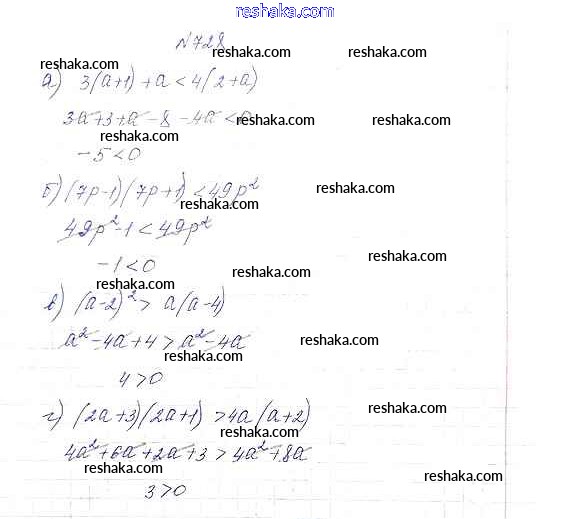 reshaka.com
N 728
reshaka.com
а) 3(a+1)+a<4(2+a)
reshaka.com
3a+3+a-8-4a<0
reshaka.com reshaka.com
reshaka.com
-5<0
б) (7p-1)(7p+1)<49p²
reshaka.com
reshaka.com
49p²-1<49p²
-1<0
reshaka.com
reshaka.com
в) (a-2)²>a(a-4)
reshaka.com
a²-4a+4>a²-4a
reshaka.com
reshaka.com
4>0
reshaka.com
г) (2a+3)(2a+1)>4a(a+2)
reshaka.com
4a²+6a+2a+3>4a²+8a
reshaka.com
reshaka.com
3>0